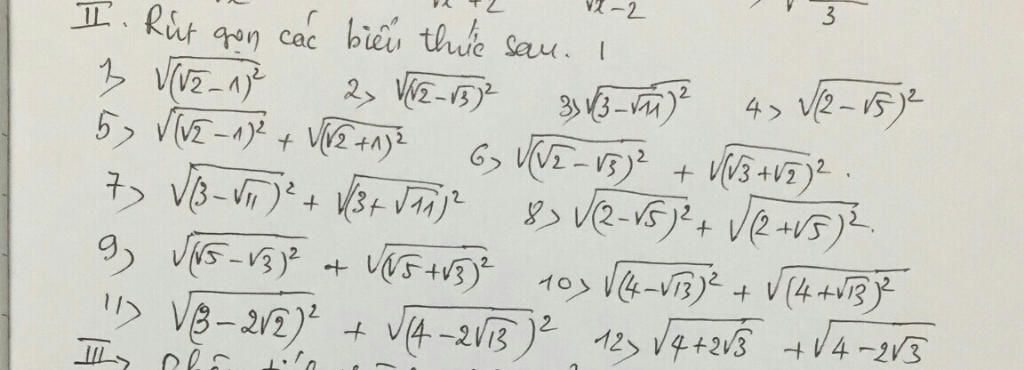 √x+2 √x-2 3
II. Rút gọn các biểu thức sau.
1> √(√2-1)² 2> √(√2-√3)² 3> √(3-√11)² 4> √(2-√5)²
5> √(√2-1)² + √(√2+1)² 6> √(√2-√3)² + √(√3+√2)².
7> √(3-√11)² + √(3+√11)² 8> √(2-√5)² + √(2+√5)².
9> √(√5-√3)² + √(√5+√3)² 10> √(4-√13)² + √(4+√13)²
11> √(3-2√2)² + √(4-2√13)² 12> √4+2√3 + √4-2√3
III>